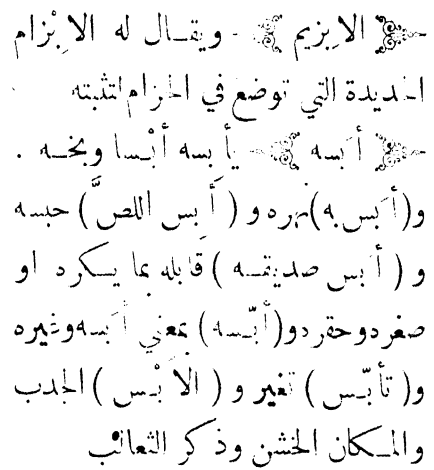 ﴿ الإبزيم ﴾ - ويقال له الإبْزام
الحديدة التي توضع في الحزام لتثبته
﴿ أبسه ﴾ - يأبسه أبْسا وبخه .
و(أبس به) نهره و ( أبس اللصَّ ) حبسه
و ( أبس صديقه ) قابله بما يكره او
صغره وحقره و(أبّسه) بمعني أبسه وغيره
و( تأبّس ) تغير و ( الأبْس ) الجدب
والمكان الخشن وذكر الثعالب